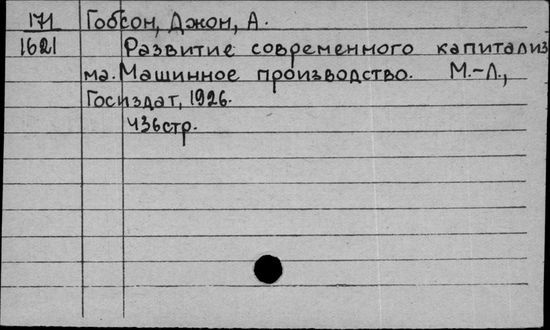 171 Гобсон, Джон, А.
1621 Развитие современного капитализ
ма. Машинное производство. М.-Л.,
Госиздат, 1926.
436стр.